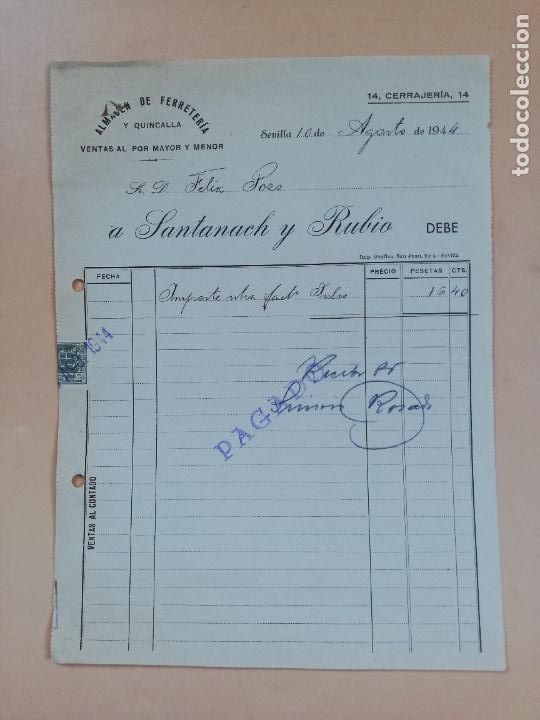 ALMACEN DE FERRETERÍA
Y QUINCALLA
VENTAS AL POR MAYOR Y MENOR
14, CERRAJERÍA, 14
Sevilla 10 de Agosto de 1944
Sr. D. Felix Pozo
a Santanach y Rubio DEBE
Imp. Unidas, San Juan, 2 y 4 - Sevilla
FECHA PRECIO PESETAS CTS.
Importe ntra fact.ª Julio 16 40
1944
PAGADO
Recibí
Rosado
VENTAS AL CONTADO
todocoleccion